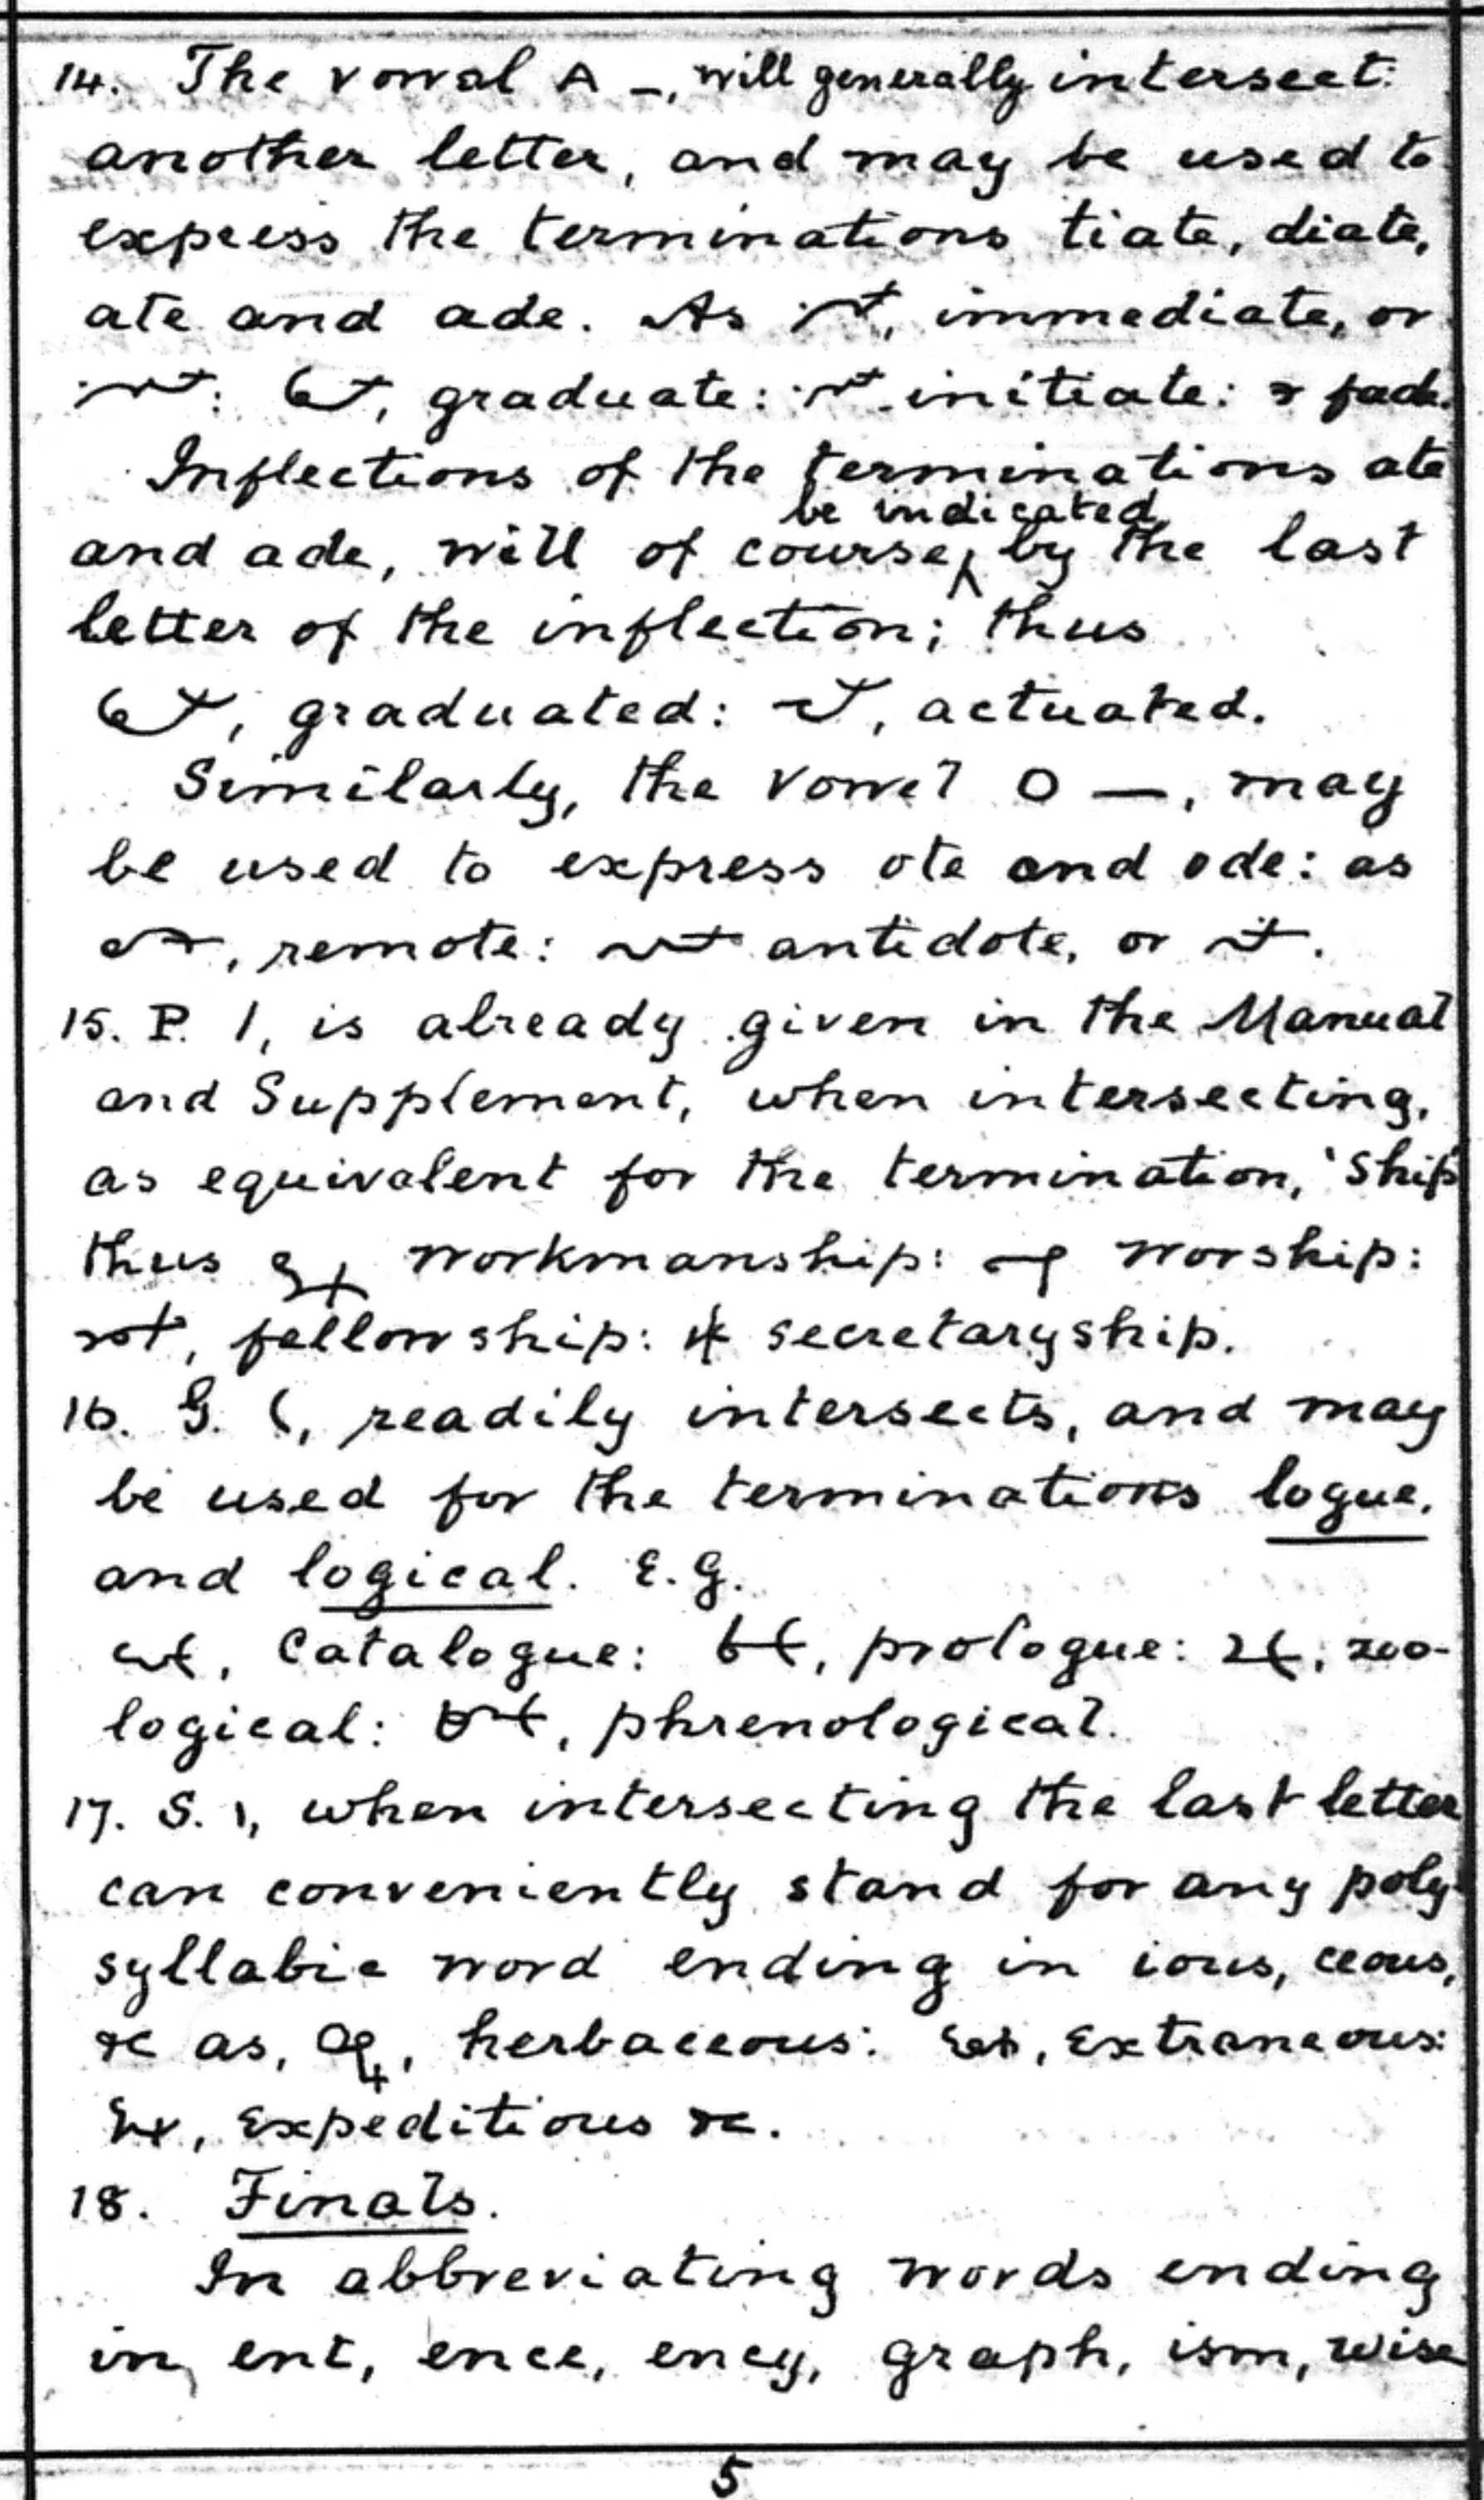 14. The vowal A –, will generally intersect
another letter, and may be used to
express the terminations tiate, diate,
ate and ade. As , immediate, or
: , graduate: initiate: fade.
Inflections of the terminations ate
be indicated
and ade, will of course, by the last
letter of the inflection; thus
, graduated: , actuated.
Similarly, the vowel O —, may
be used to express ote and ode: as
, remote: antidote, or .
15. P. /, is already given in the Manual
and Supplement, when intersecting,
as equivalent for the termination, 'ship'
thus workmanship: worship:
, fellowship: secretaryship.
16. G. (, readily intersects, and may
be used for the terminations logue,
and logical. E.G.
, catalogue: , prologue: , zoo-
logical: , phrenological.
17. S. \, when intersecting the last letter
can conveniently stand for any poly-
syllabic word ending in ious, ceous,
&c as, , herbaceous: , Extraneous:
, Expeditious &c.
18. Finals.
In abbreviating words ending
in, ent, ence, ency, graph, ism, wise
5